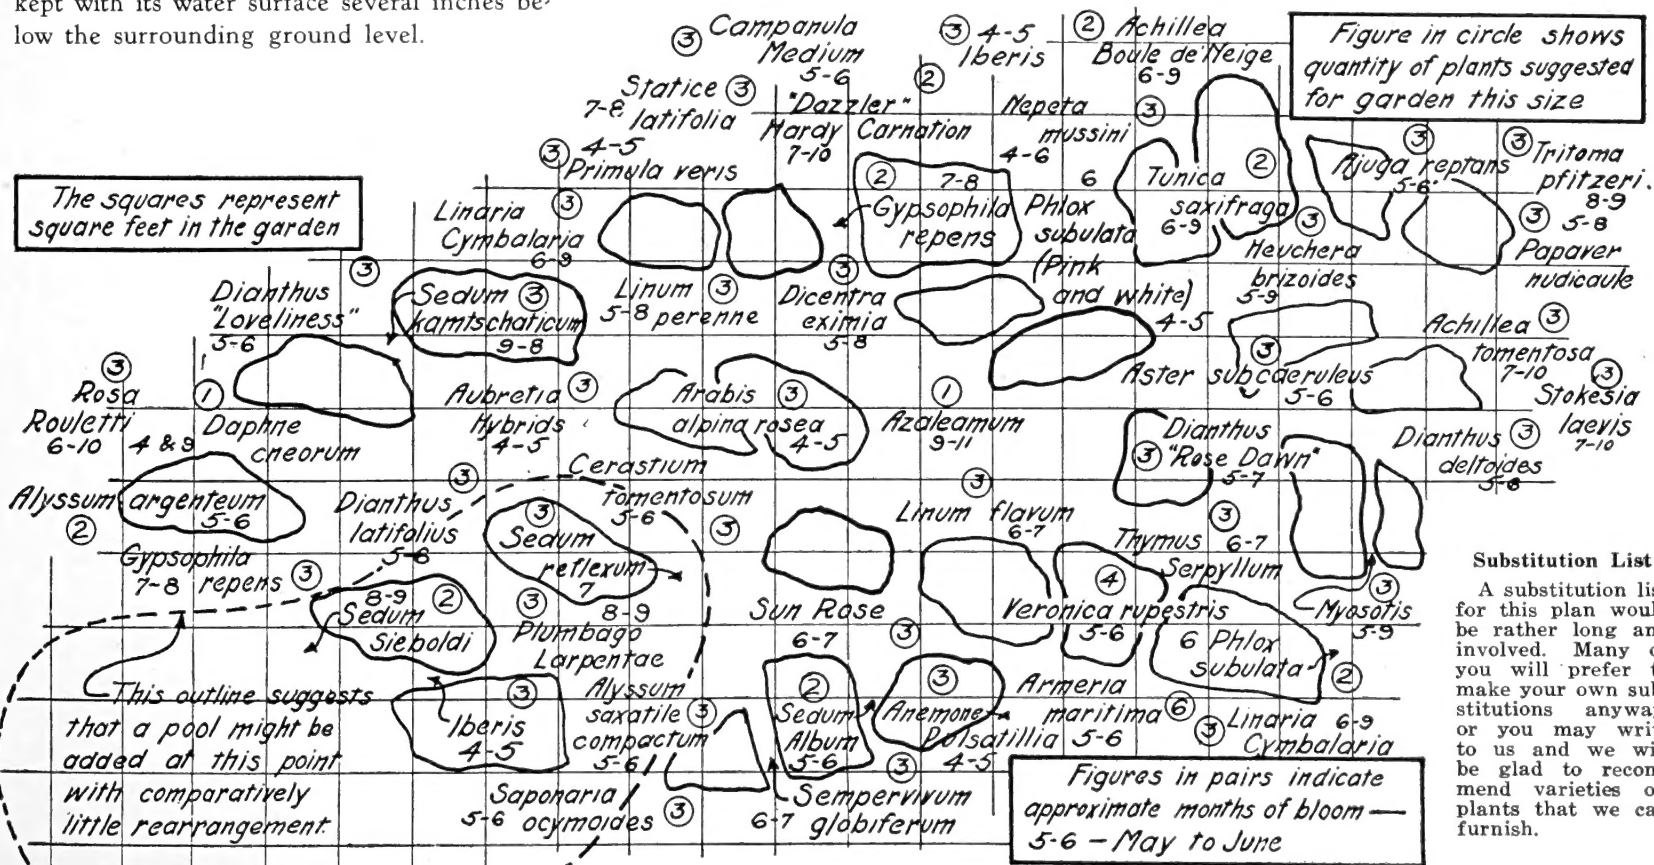 kept with its water surface several inches be-
low the surrounding ground level.
Figure in circle shows
quantity of plants suggested
for garden this size
The squares represent
square feet in the garden
③ Campanula
Medium
5-6
③ 4-5
Iberis
② Achillea
Boule de Neige
6-9
Statice ③
7-8 latifolia
"Dazzler" ②
Hardy Carnation
7-10
Nepeta
mussini ③
4-6
③ 4-5
Primula veris
Linaria ③
Cymbalaria
6-9
② 7-8
Gypsophila
repens
6
Phlox
subulata
(Pink
and white)
4-5
Tunica ②
saxifraga
6-9
③
Ajuga reptans
5-6
③ Tritoma
pfitzeri.
8-9
③ 5-8
Papaver
nudicaule
③
Heuchera
brizoides
5-9
③
Dianthus
"Loveliness"
5-6
Sedum ③
kamtschaticum
9-8
Linum ③
5-8 perenne
③
Dicentra
eximia
5-8
Achillea ③
tomentosa
7-10
③
Aster subcaeruleus
5-6
③
Stokesia
laevis
7-10
③
Rosa
Rouletti
6-10
①
Daphne
4 & 9 cneorum
Aubretia ③
Hybrids
4-5
Arabis ③
alpina rosea
4-5
①
Azaleamum
9-11
Dianthus
③ "Rose Dawn"
5-7
Dianthus ③
deltoides
5-8
Alyssum argenteum
② 5-6
③
Dianthus
latifolius
5-6
Cerastium
tomentosum
5-6 ③
③
Linum flavum
6-7
③
Thymus 6-7
Serpyllum
Gypsophila
7-8 repens ③
③
Sedum
reflexum
7
8-9 ②
Sedum
Sieboldi
③ 8-9
Plumbago
Larpentae
Sun Rose
6-7 ③
④
Veronica rupestris
5-6
③
Myosotis
5-9
6 Phlox
subulata
②
This outline suggests
that a pool might be
added at this point
with comparatively
little rearrangement.
③
Iberis
4-5
Alyssum
saxatile ③
compactum
5-6
②
Sedum
Album
5-6
③
Anemone
Pulsatillia
4-5
Armeria
maritima ⑥
5-6
③ Linaria 6-9
Cymbalaria
Saponaria
5-6 ocymoides ③
③
Sempervivum
6-7 globiferum
Figures in pairs indicate
approximate months of bloom —
5-6 — May to June
Substitution List
A substitution lis
for this plan woul
be rather long an
involved. Many o
you will prefer t
make your own sub
stitutions anywa
or you may writ
to us and we wi
be glad to recom
mend varieties o
plants that we ca
furnish.